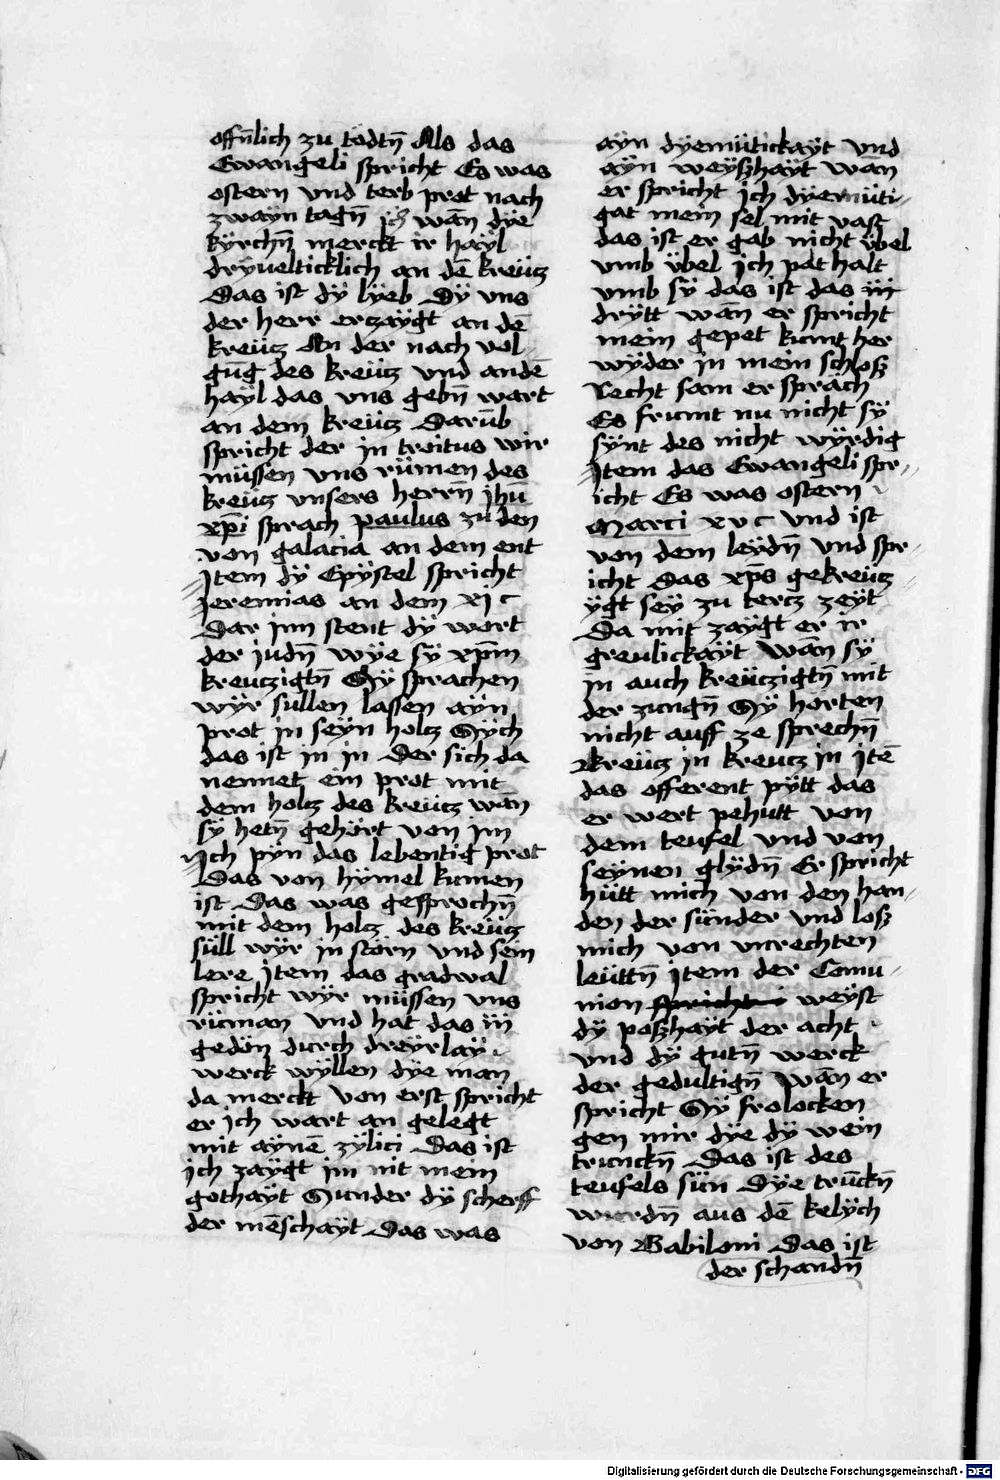 offn̄lich zu tödtn̄ Als das
Ewangeli spricht Es was
ostern vnd terb prot nach
zwayn tagn̄ ich wān dye
kÿrchn̄ merckt ir hayl
drÿueltticklich an dē kreücz
Das ist dÿ lÿeb Dÿ vns
der herr erczaÿgt an dē
kreücz An der nach vol
gūg des kreücz vnd an dē
haÿl das vns gebn̄ wart
an dem kreücz Darūb
spricht der in troitus wir
müssen vns rümen des
kreücz vnsers herrn̄ jhū
xp̄i sprach paulus zu den
von galacia an dem ent
Item dÿ Epÿstel spricht
Jeremias an dem xj c
Dar inn stent dÿ wort
der judn̄ wÿe sÿ xp̄m
kreuczigtn̄ Sÿ sprachen
wÿr sullen lassen aÿn
prot in seÿn holcz Sÿch
das ist in in Der sich da
nennet ein prot mit
dem holcz des kreücz wān
sÿ hetn̄ gehört von im
Ich pÿn das lebentig prot
Das von hÿmel kumen
ist Das was gesprochn̄
mit dem holcz des kreücz
süll wÿr in störn vnd sein
lere Item das gradwal
spricht wÿr müssen vns
rüman vnd hat das iij
gedön durch dreÿrlaÿ
werck wÿllen dye man
da merckt von erst spricht
er ich wart an gelegt
mit aÿnē zÿlici Das ist
ich zaÿgt im nit mein
gothaÿt Sunder dÿ scherff
der mēschaÿt Das was
aÿn dÿemütickaÿt vnd
aÿn weÿszhaÿt wān
er spricht ich dÿemüti
gat mein sel mit vast
das ist er gab nicht übel
vmb übel ich pat halt
vmb sÿ das ist das iij
drÿtt wān er spricht
mein gepet kumt her
wÿder in mein schosz
Recht sam er sprāch
Es frumt nu nicht sÿ
sÿnt des nicht wÿrdig
Item das Ewangeli spr
icht Es was ostern
Marci xv c vnd ist
von dem leÿdn̄ vnd spr
icht Das xp̄s gekreücz
ÿgt seÿ zu tercz zeÿt
Da mit zaÿgt er ir
greulickaÿt wān sÿ
in auch kreüczigtn̄ mit
der zungn̄ Sÿ horten
nicht auff ze sprechn̄
kreücz in kreucz in Itē
das offerent pÿtt das
er wert pehütt von
dem teufel vnd von
seÿnen glÿdn̄ Er spricht
hütt mich von den han
den der sünder vnd losz
mich von vnrechten
leüttn̄ Item der Comu
nion spricht weÿst
dÿ poszhaÿt der acht
vnd dÿ gutn̄ werck
der gedultign̄ wān er
spricht Sÿ frolocken
gen mir dÿe dÿ wein
trunckn̄ Das ist des
teufels sün Dÿe trūckn̄
wurdn̄ aus dē kelÿch
von Babiloni Das ist
der schandn̄
Digitalisierung gefördert durch die Deutsche Forschungsgemeinschaft - DFG